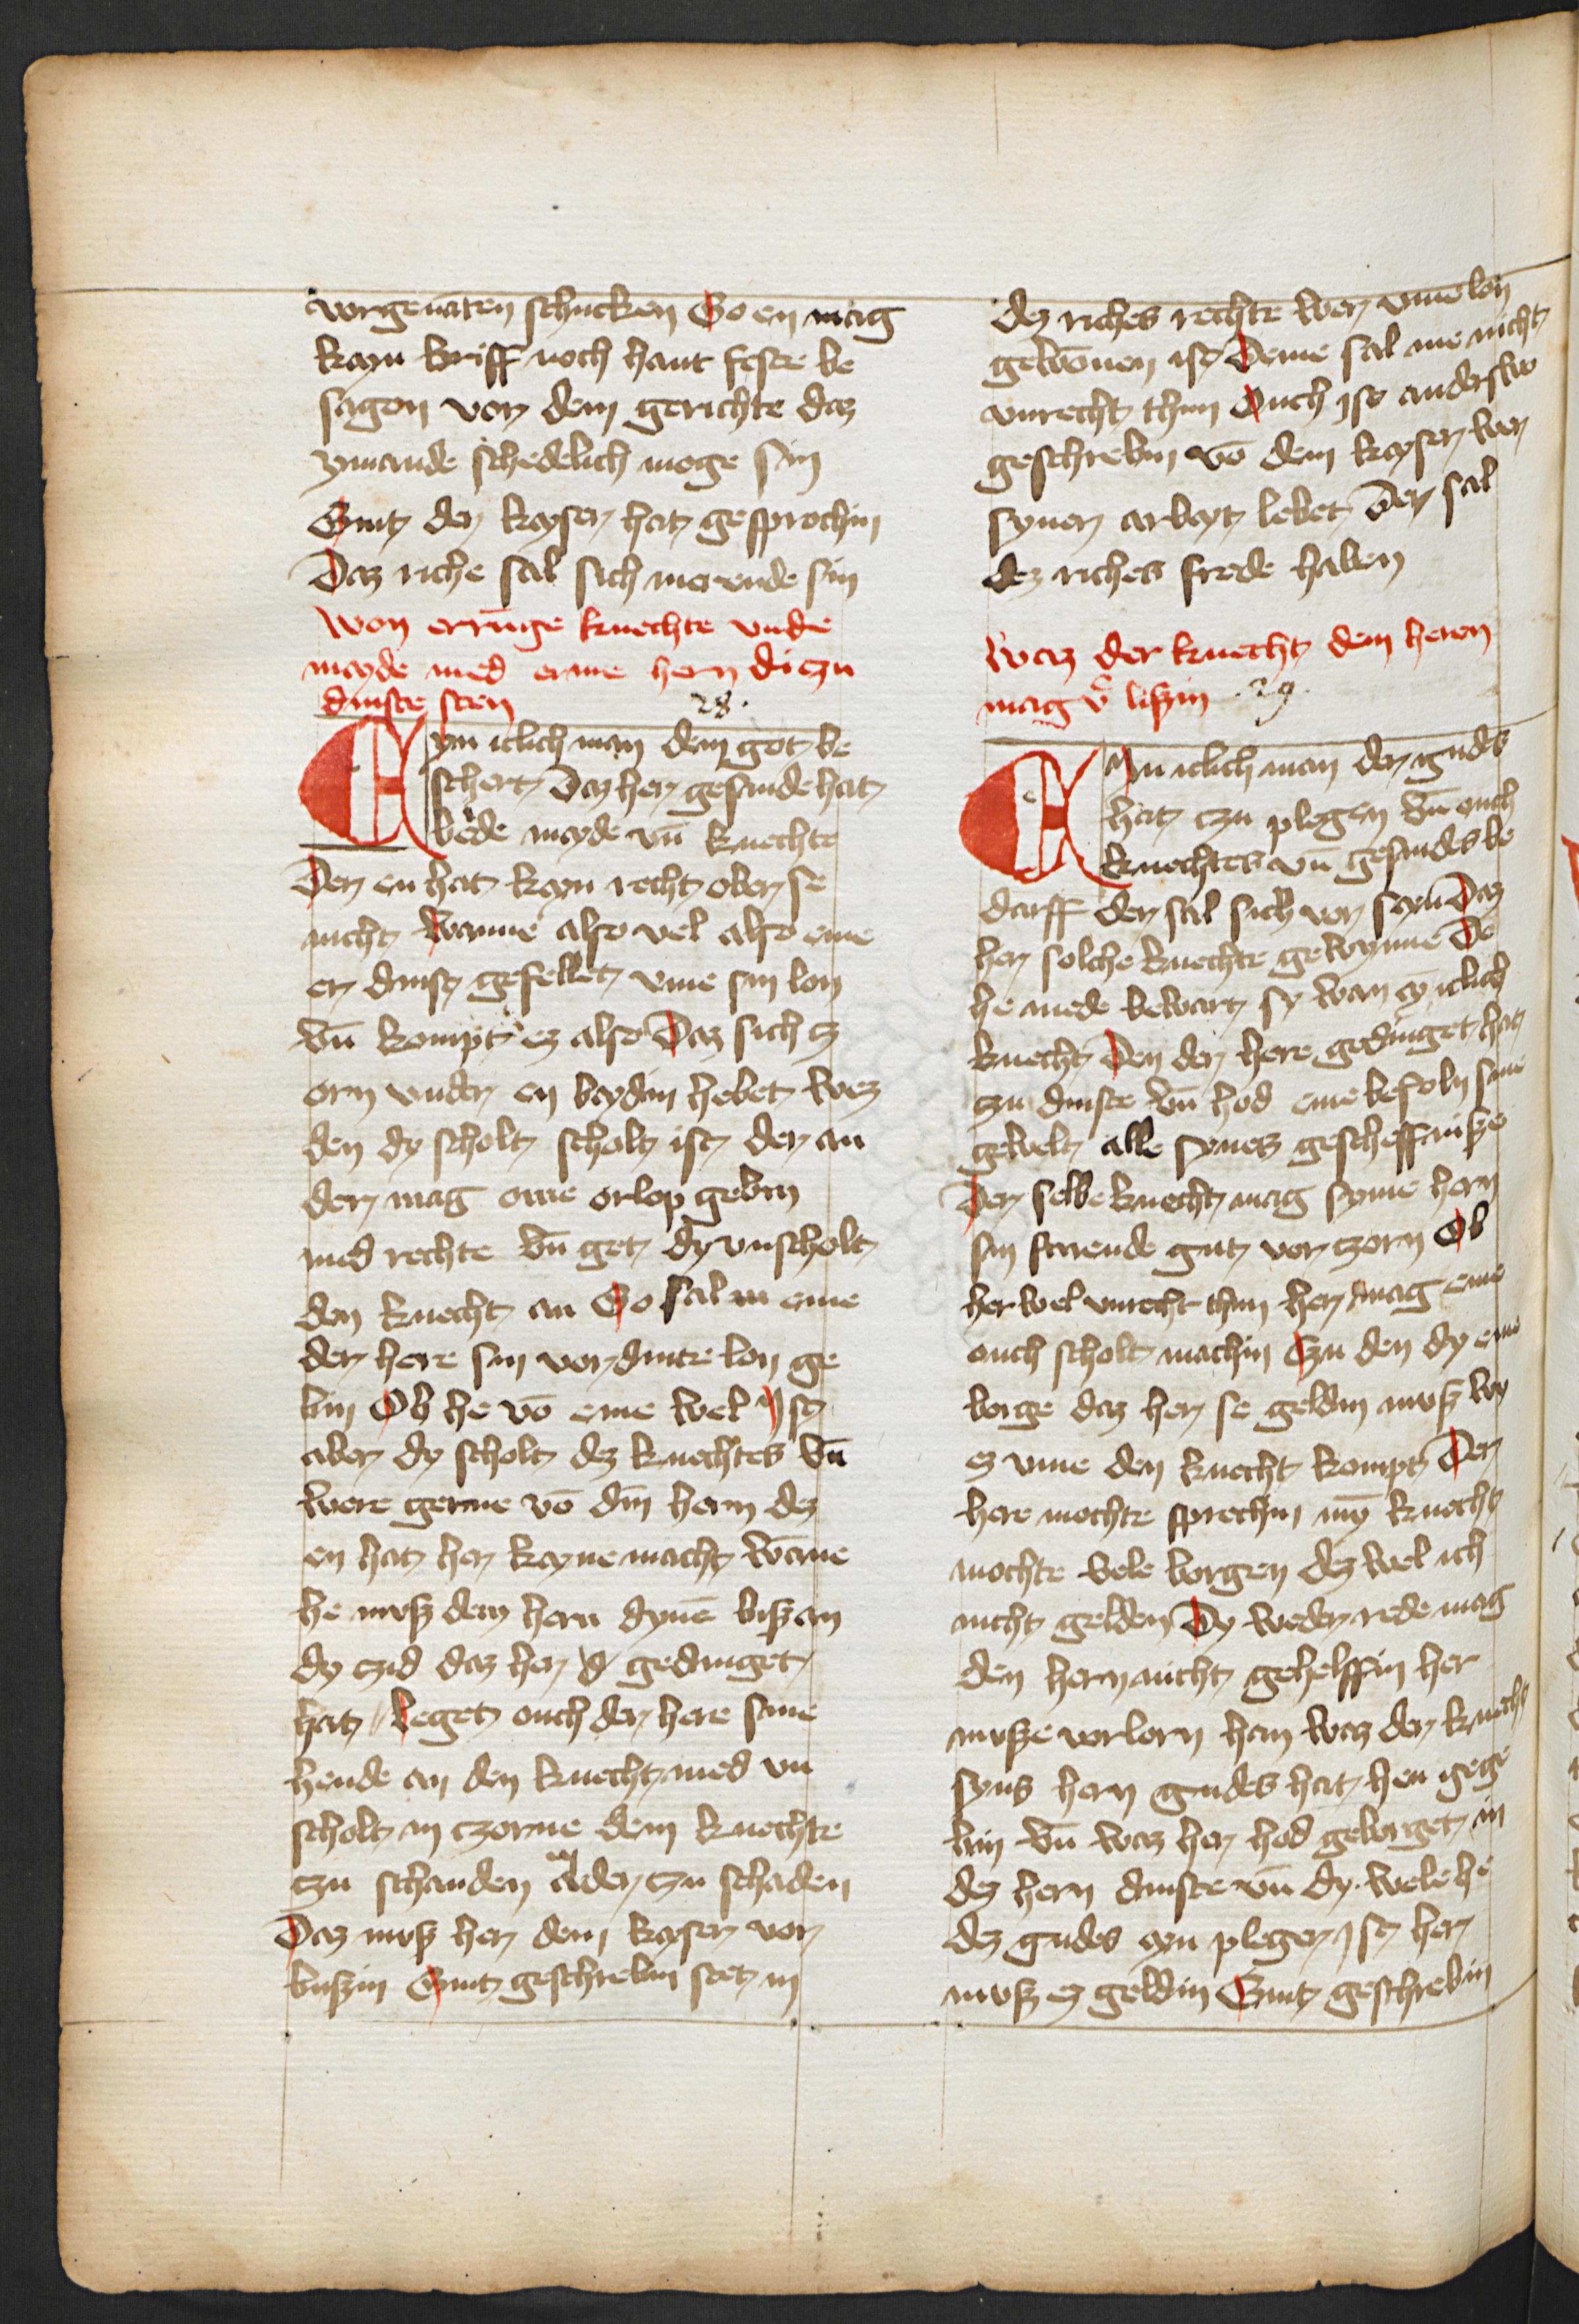 vorgenāten schucken So en mag
kayn briff noch hant feste be
sagen vor dem gerichte daz
ymande schedelich moge sin
Sint der keyser hat gesprochin
Daz riche sal sich merende sin
Von erringe knechte vnde
meyde med erme hern di czu
dinste sten 28.
Eyn iclich man dem got be
schert Daz her gesinde hat
bede meyde vn̄ knechte
Der en hat kayn recht ober se
nicht wanne also vel also eme
er dinst gefellet vme sin lon
Vn̄ kompt ez also Daz sich cz
orn vnder en beydin hebet wez
den dy scholt scholt ist der an
der mag ome orlop gebin
med rechte Vn̄ get dy vnscholt
den knecht an So sal m eme
der here sin vordinte lon ge
bin Ob he vō eme wel Ist
aber dy scholt dez knechtes Vn̄
were gerne vō dīn hern dez
en hat her keyne macht wāne
he mvß dem hern dynē biß an
dy czid daz her gedinget
hat leget ouch der here sine
hende an den knecht med vn
scholt in czorne dem knechte
czu schanden Ader czu schaden
Daz mvß her dem keyser vor
bußin Sint geschrebin stet in
dez riches rechte wer vme lon
gewōnen ist Deme sal me nicht
vnrecht thun Ouch ist anderswo
geschrebin vō dem keyser wer
syner arbeyt lebet Der sal
dez riches frede haben
Waz der knecht dem heren
mag v̄lisin .29.
Eyn iclich man der gudes
hat czu plegen Vn̄ ouch
knechtes vn̄ gesindes be
darff der sal sich vor seyn Daz
her solche knechte gewynne Do
he mede bewart sy wan eȳ iclich
knecht Den der here gedinget hat
czu dinste Vn̄ hod eme befoln sine
gewelt alle synez gescheffnisze
Der selbe knecht mag syme hern
sin farende gut vor czern Ob
her wel vnrecht thun her mag eme
ouch scholt machin Czu den dy eme
borge daz her se geldin mvß wy
ez vme den knecht kompt Der
here mochte sprechin mȳ knecht
mochte vele borgen dez wel ich
nicht gelden Dy weder rede mag
den hern nicht gehelffin her
mvsze vorlorn han waz der knecht
syns hern gudes hat hen gege
bin Vn̄ waz her hod geborget in
dez hern dinste vn̄ dy wele he
dez gudes eyn pleger ist her
mvß ez geldin Sint geschrebin